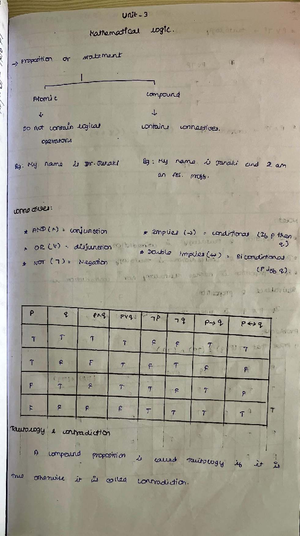 Unit-3
Mathematical Logic.
→ Proposition or statement
Atomic compound
↓ ↓
Do not contain logical contains connectives.
operators
Eg: My name is Dr. Janaki Eg: My name is Janaki and I am
an As. Prof.
Connectives:
* AND (∧) = conjunction * Implies (→) = conditional (If p then q)
* OR (∨) = disjunction * Double Implies (↔) = Biconditional
* NOT (¬) = Negation (p iff q).
P q p∧q p∨q ¬p ¬q p→q p↔q
T T T T F F T T
T F F T F T F F
F T F T T F T F
F F F F T T T T
Tautology & contradiction
A compound proposition is called tautology if it is
true otherwise it is called contradiction.